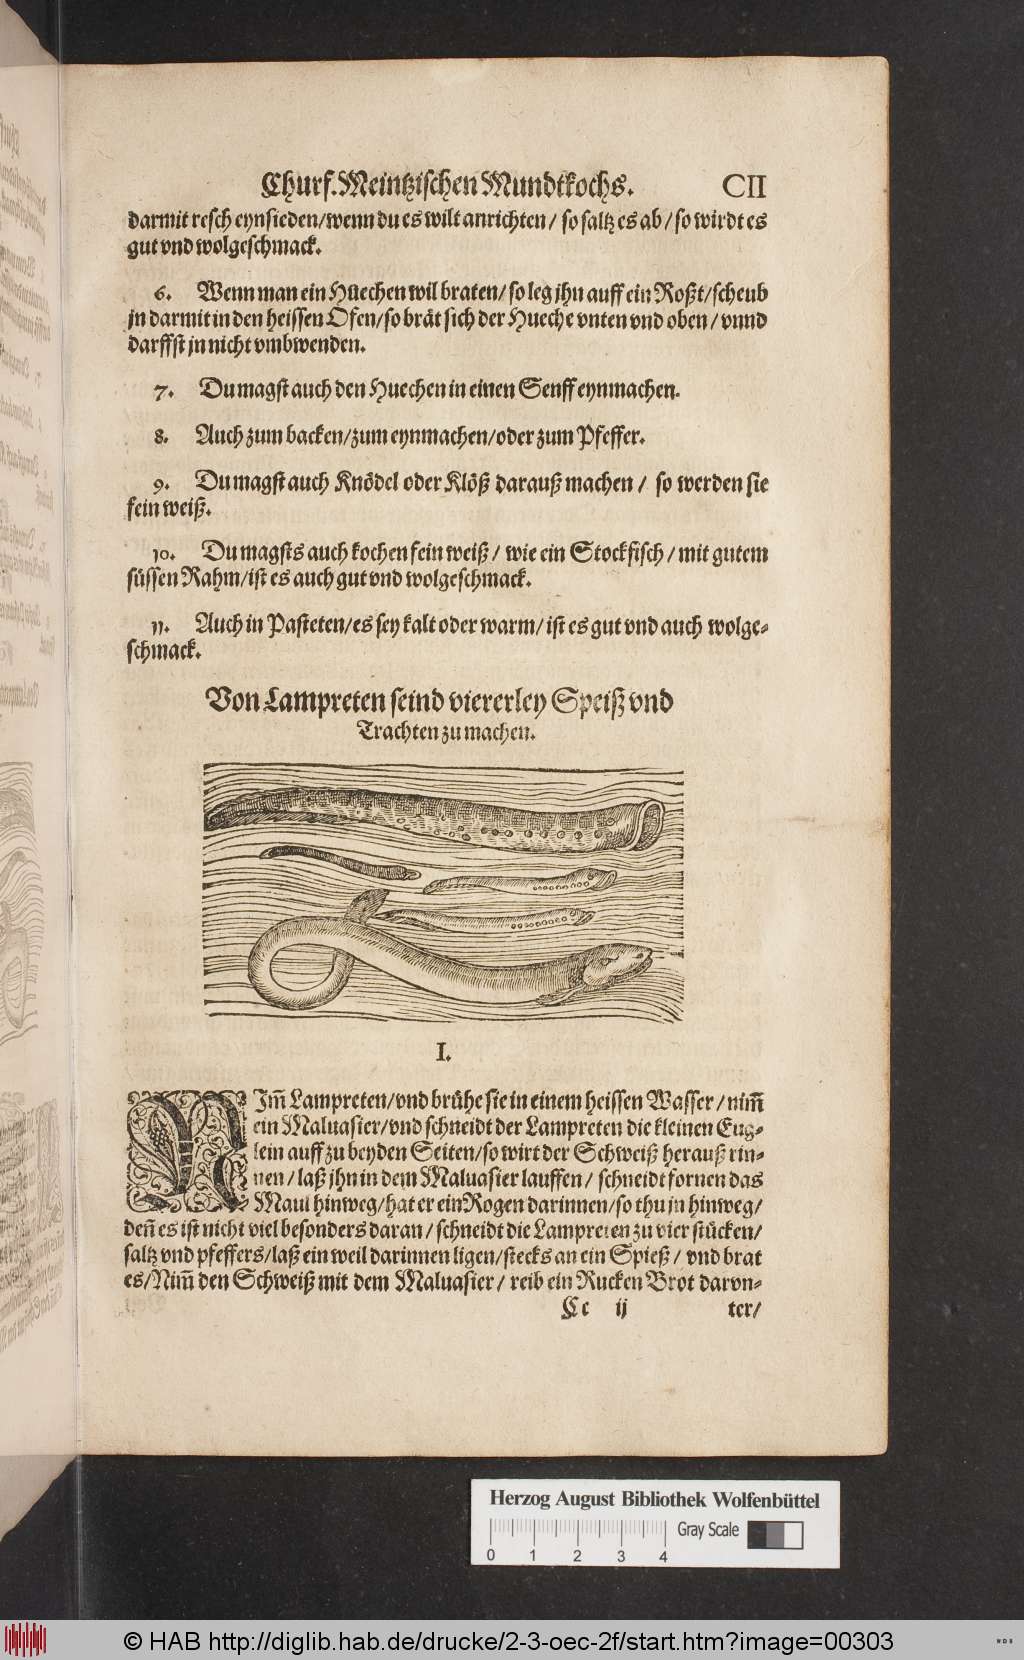 Churf. Meintzischen Mundtkochs. CII
darmit resch eynsieden/wenn du es wilt anrichten/ so saltz es ab/so wirdt es
gut vnd wolgeschmack.
6. Wenn man ein Hůechen wil braten/so leg jhn auff ein Roßt/scheub
jn darmit in den heissen Ofen/so brät sich der Hueche vnten vnd oben/vnnd
darffst jn nicht vmbwenden.
7. Du magst auch den Huechen in einen Senff eynmachen.
8. Auch zum backen/zum eynmachen/oder zum Pfeffer.
9. Du magst auch Knödel oder Klöß darauß machen/ so werden sie
fein weiß.
10. Du magsts auch kochen fein weiß/ wie ein Stockfisch/mit gutem
süssen Rahm/ist es auch gut vnd wolgeschmack.
11. Auch in Pasteten/es sey kalt oder warm/ist es gut vnd auch wolge-
schmack.
Von Lampreten seind viererley Speiß vnd
Trachten zu machen.
I.
NIm̃ Lampreten/vnd brühe sie in einem heissen Wasser/nim̃
ein Maluasier/vnd schneidt der Lampreten die kleinen Eug-
lein auff zu beyden Seiten/so wirt der Schweiß herauß rin-
nen/laß jhn in dem Maluasier lauffen/ schneidt fornen das
Maul hinweg/hat er ein Rogen darinnen/so thu jn hinweg/
deñ es ist nicht viel besonders daran/schneidt die Lampreten zu vier stücken/
saltz vnd pfeffers/laß ein weil darinnen ligen/stecks an ein Spieß/ vnd brat
es/Nim̃ den Schweiß mit dem Maluasier/ reib ein Rucken Brot darvn-
Cc ij ter/
Herzog August Bibliothek Wolfenbüttel
Gray Scale
0 1 2 3 4
© HAB http://diglib.hab.de/drucke/2-3-oec-2f/start.htm?image=00303